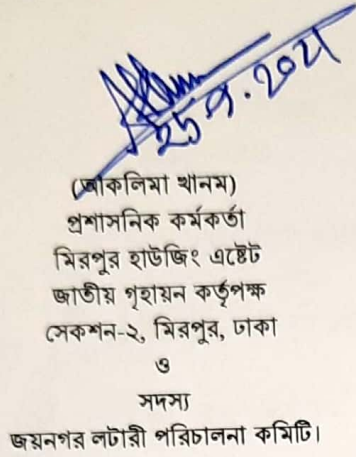 25.9.2021
(আকলিমা খানম)
প্রশাসনিক কর্মকর্তা
মিরপুর হাউজিং এষ্টেট
জাতীয় গৃহায়ন কর্তৃপক্ষ
সেকশন-২, মিরপুর, ঢাকা
ও
সদস্য
জয়নগর লটারী পরিচালনা কমিটি।